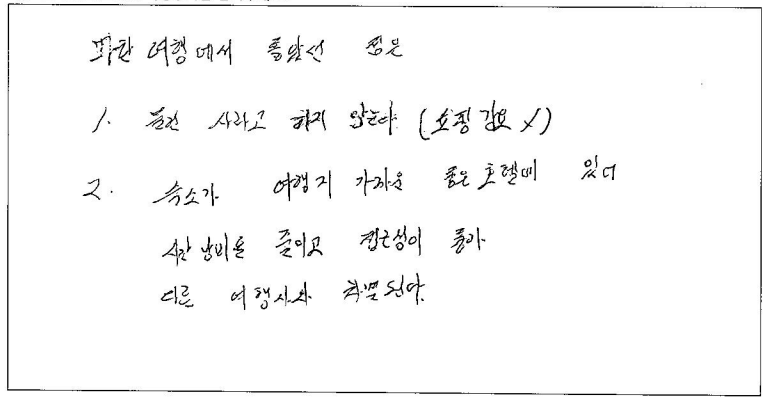 또한 여행에서 좋았던 점은
1. 물건 사라고 하지 않는다 (쇼핑 강요 X)
2. 숙소가 여행지 가까운 좋은 호텔에 있어
시간 낭비를 줄이고 접근성이 좋아
다른 여행사와 차별된다.